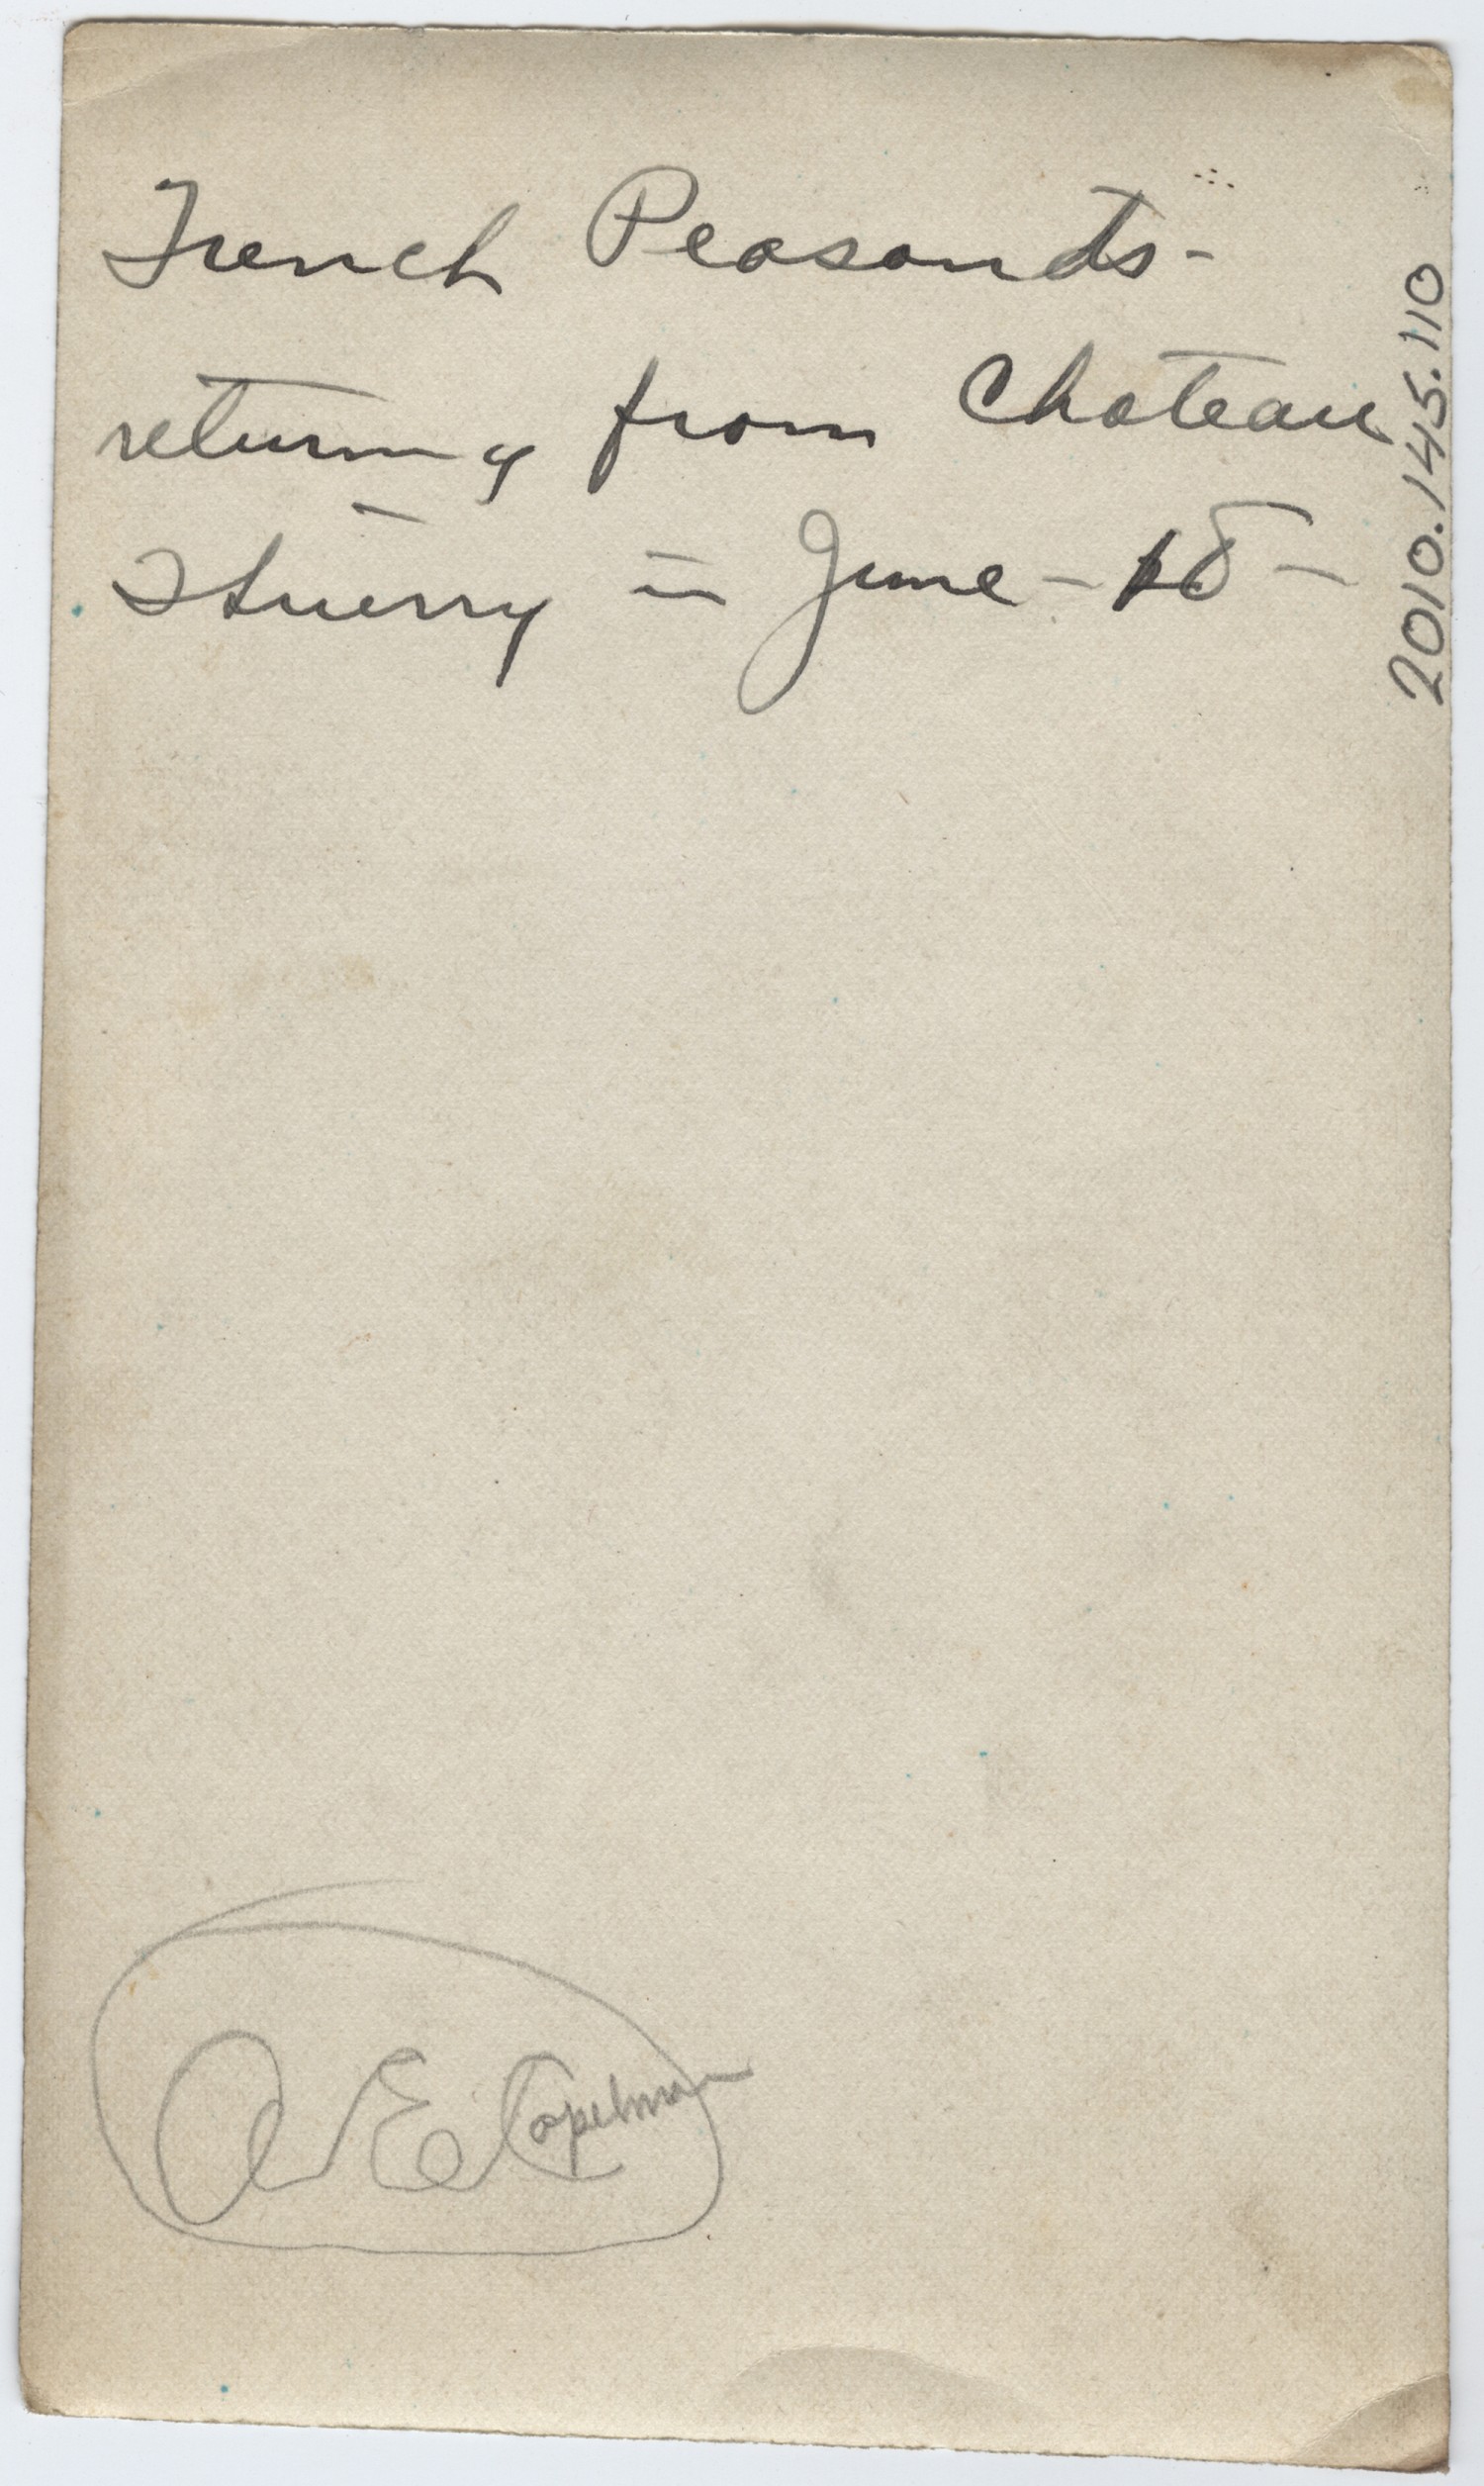 French Peasants-
returning from Chateau
Thierry in June - 18 -
2010.145.110
A E Copelman